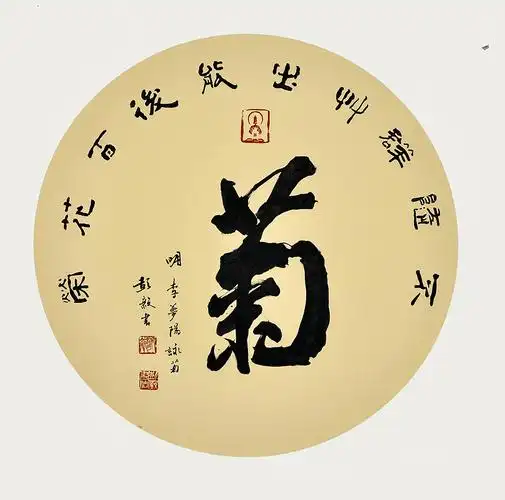 不隨群艸出能後百花榮
菊
明李夢陽詠菊
彭毅書